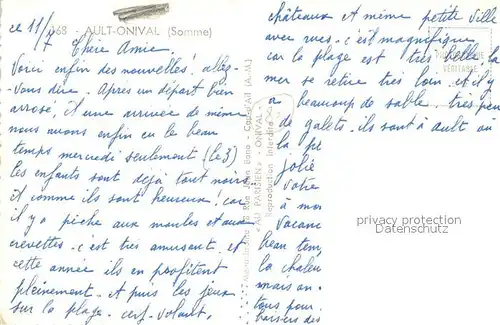 ce 11/7 68 AULT-ONIVAL (Somme)
Chère Amie.
Voici enfin des nouvelles! allez-
vous dire. Après un départ bien
arrosé, et une arrivée de même
nous avons enfin eu le beau
temps mercredi seulement (le 3)
les enfants sont déjà tout noirs
et comme ils sont heureux! car
il y a pêche aux moules et aux
crevettes. c'est très amusant. et
cette année ils en profitent
pleinement. et puis les jeux
sur la plage. cerf-volant,
châteaux et même petite ville
avec rues. c'est magnifique
car la plage est très belle la
mer se retire très loin et il y
a beaucoup de sable. très peu
de galets. ils sont à ault où
la pl
jolie
Votre
à mon
Vacanc
beau tem
la chaleu
mais an
tous pour
baisers des
"AU PARISIEN" - ONIVAL
Reproduction interdite
VÉRITABLE
privacy protection
Datenschutz